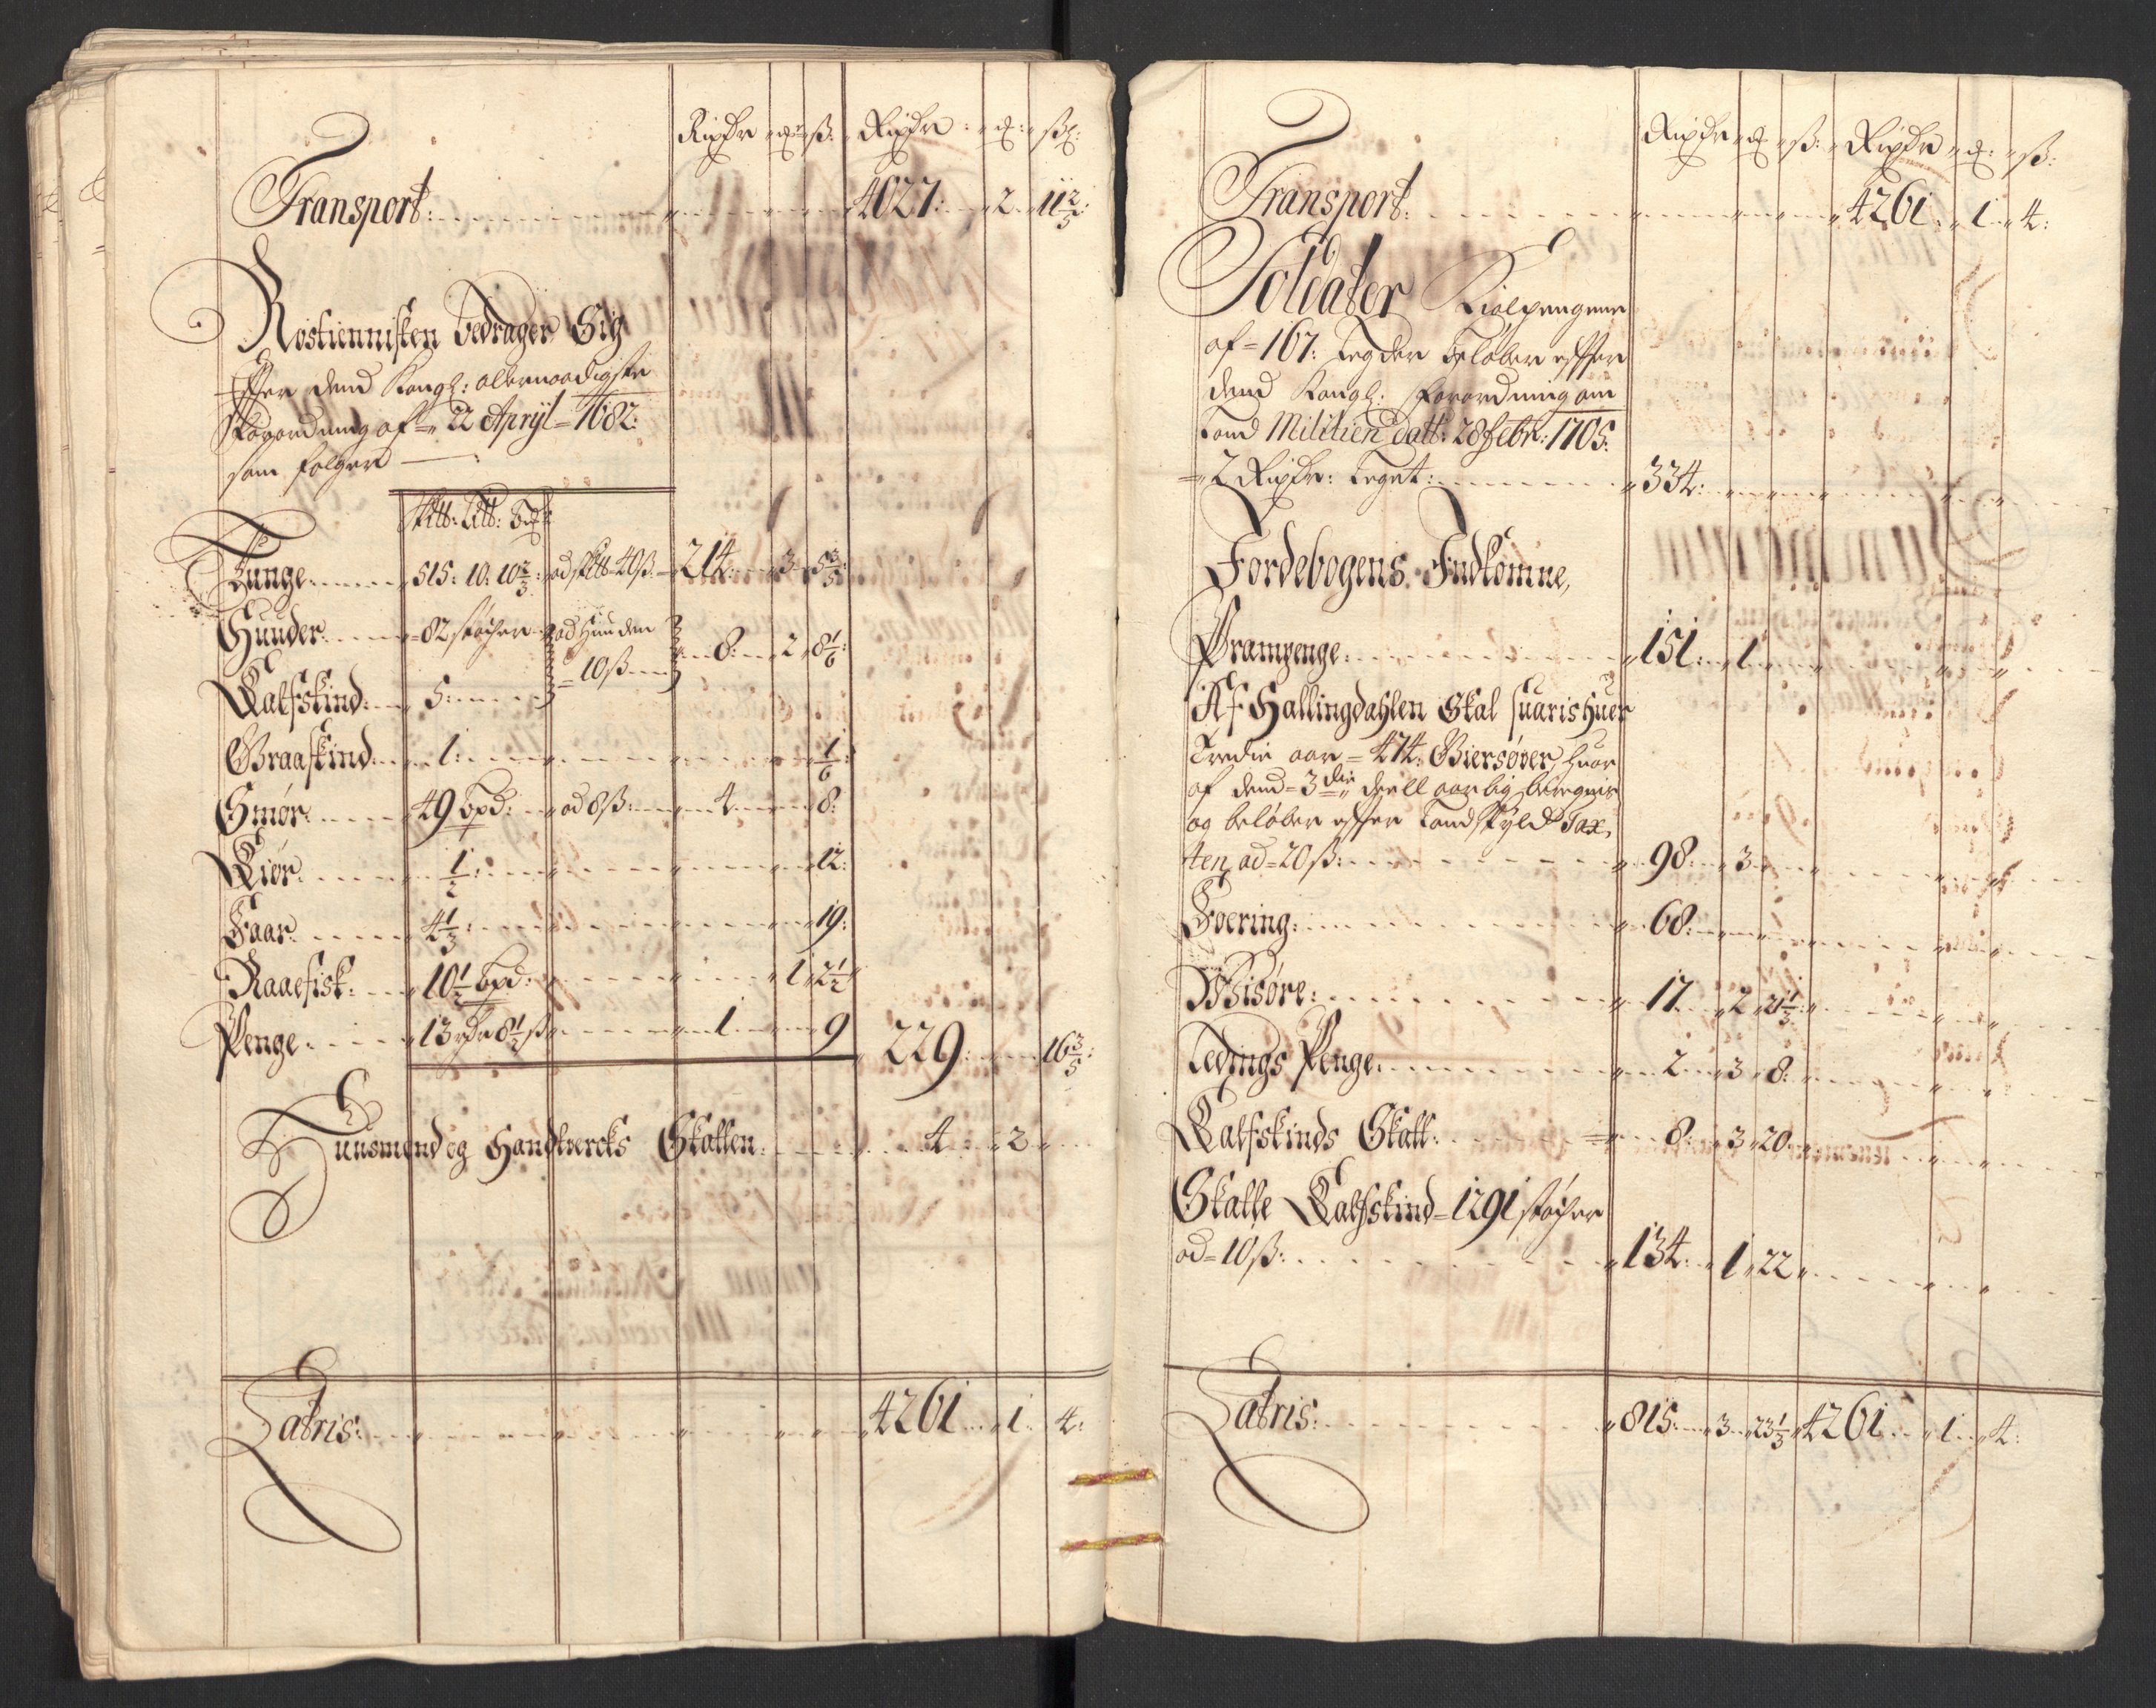 Rixdr ort ß: Rixdr: ort: ßl:
Transport: 4027: 2 11 2/5:
Rostiennisten bedrager Sig
Effter dend Kongl: allernaadigste
Forordning af 22 Aprijl = 1682:
som følger
sk℔: ℔:
Tunge 515: 10: 10 2/3: ad sk℔ 40ß: 214: 3 5 3/5:
Huuder 82 støcher ad Huuden 8: 2 8 1/6:
= 10ß
Kalfskind: 5:
Graaskind 1: 1/6:
Smør 49 bpd: ad 8ß: 4 8:
Kiør 1/2: 12:
Faar 4 1/3: 19:
Raaefisk: 10 1/2 bpd: 1 2 1/2
Penge 13 rdr 8 1/2 ß 1 9 229: 16 3/5:
Huusmend og Handtvercks Skatten 4: 2
Latris: 4261 1 4:

Rixdr ort ß: Rixdr ort: ß:
Transport: 4261 1 4:
Soldater Kiolpengene
af = 167: Legder beløber effter
dend Kongl: Forordning om
Land Militien datt: 28 Febr: 1705:
= 2 Rixdr: Leget: 334:
Jordebogens Indkomne,
Prampenge 151: 1
Af Hallingdahlen Skal suaris huer
Tredie aar = 474: Giersøver, huor
af dend = 3die deell aarlig beregnis
og beløber effter Landskyld Tax,
ten ad = 20 ß: 98: 3
Foering: 68:
Wisøre: 17 2 21 1/3:
Ledings Penge 2 3 8:
Kalfskinds Skatt: 8: 3 20
Skatte Kalfskind = 1291 støcher
ad = 10 ß: 134: 1 22
Latris: 815: 3 23 1/3 4261 1 4: